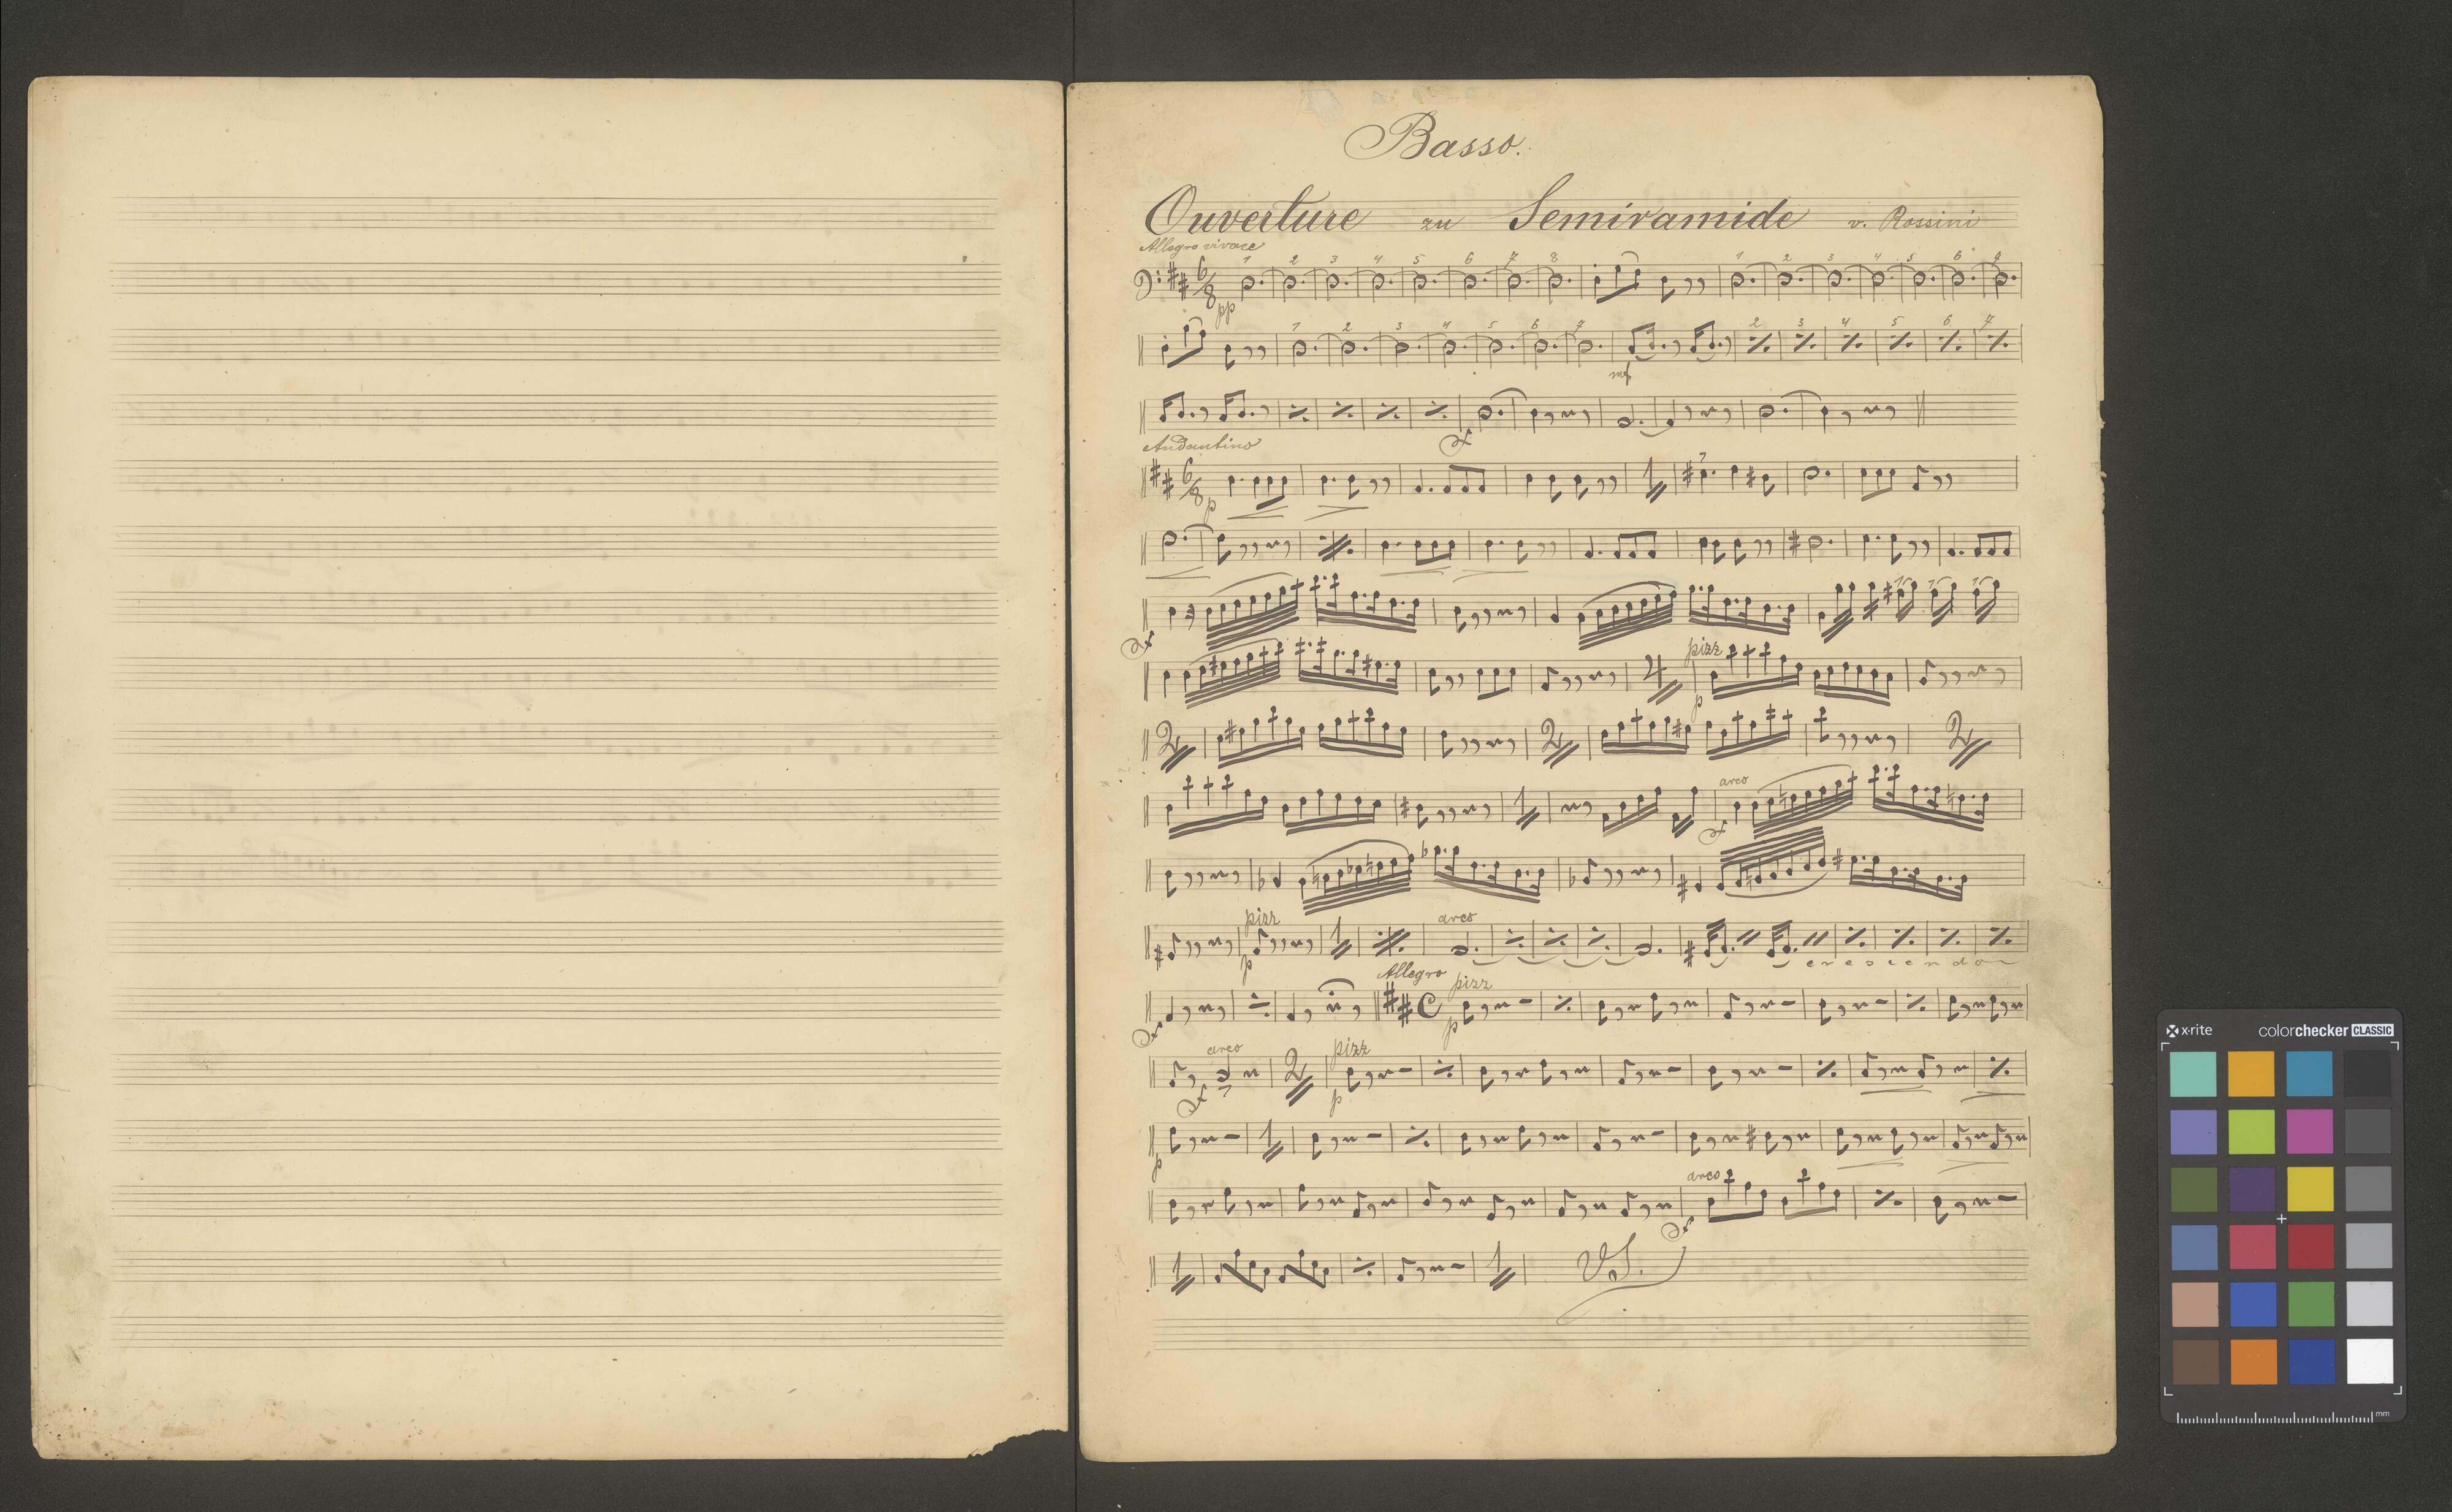 Basso.
Ouverture zu Semiramide v. Rossini
Allegro vivace
1 2 3 4 5 6 7 8 1 2 3 4 5 6 7
6/8
pp
1 2 3 4 5 6 7 2 3 4 5 6 7
mf
Andantino
6/8
p
pizz
4
p
2 2 2
arco
1
pizz arco
1
p
crescendo
Allegro pizz
C
p
arco pizz
2
p
1
p
arco
1 1 VS.
x-rite colorchecker CLASSIC
mm